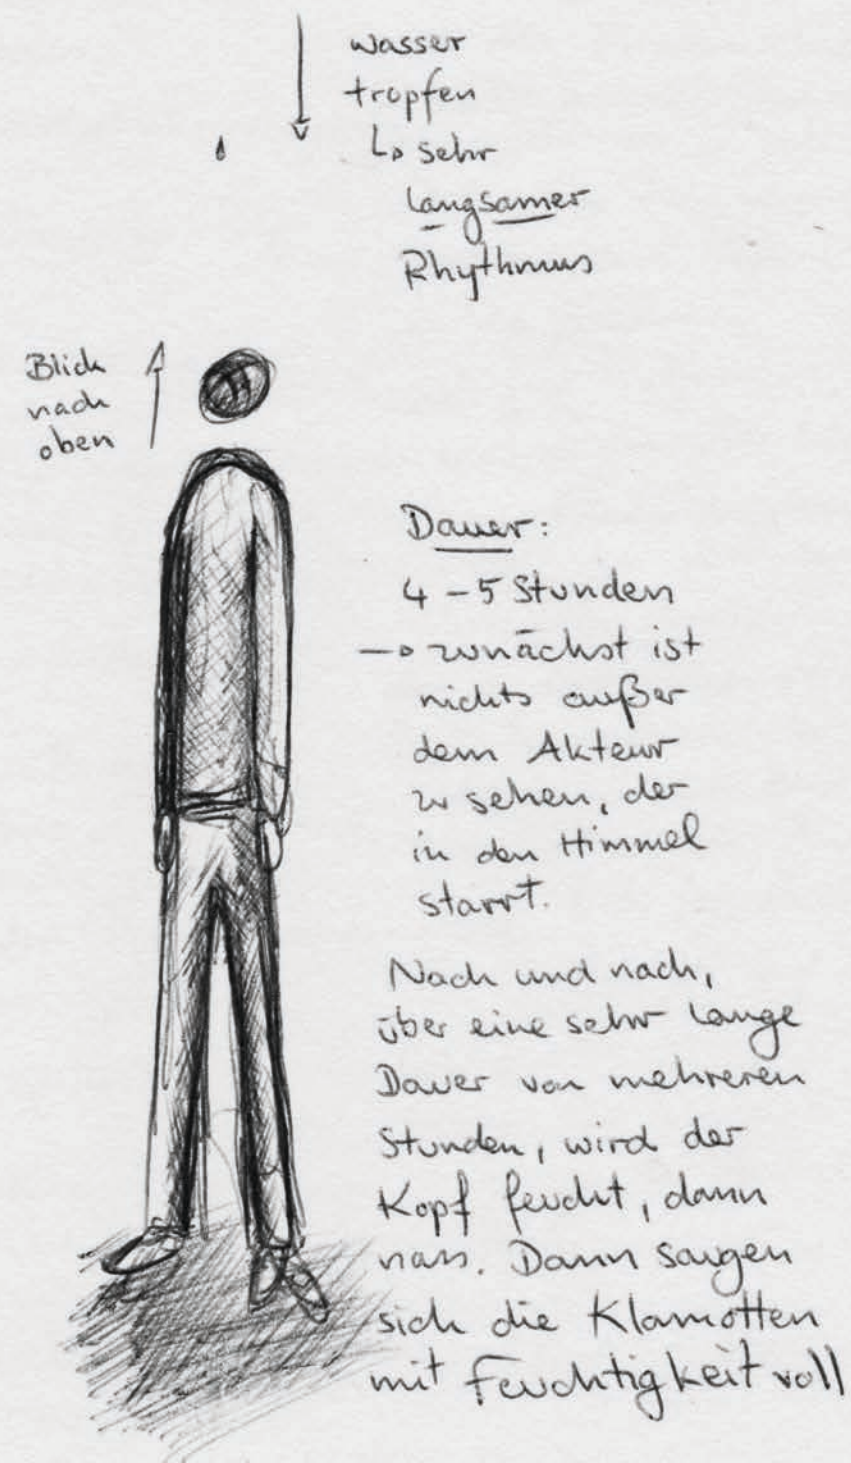 wasser
tropfen
↳ sehr
langsamer
Rhythmus
Blick
nach
oben
Dauer:
4 – 5 Stunden
→ zunächst ist
nichts außer
dem Akteur
zu sehen, der
in den Himmel
starrt.
Nach und nach,
über eine sehr lange
Dauer von mehreren
Stunden, wird der
Kopf feucht, dann
nass. Dann saugen
sich die Klamotten
mit Feuchtigkeit voll